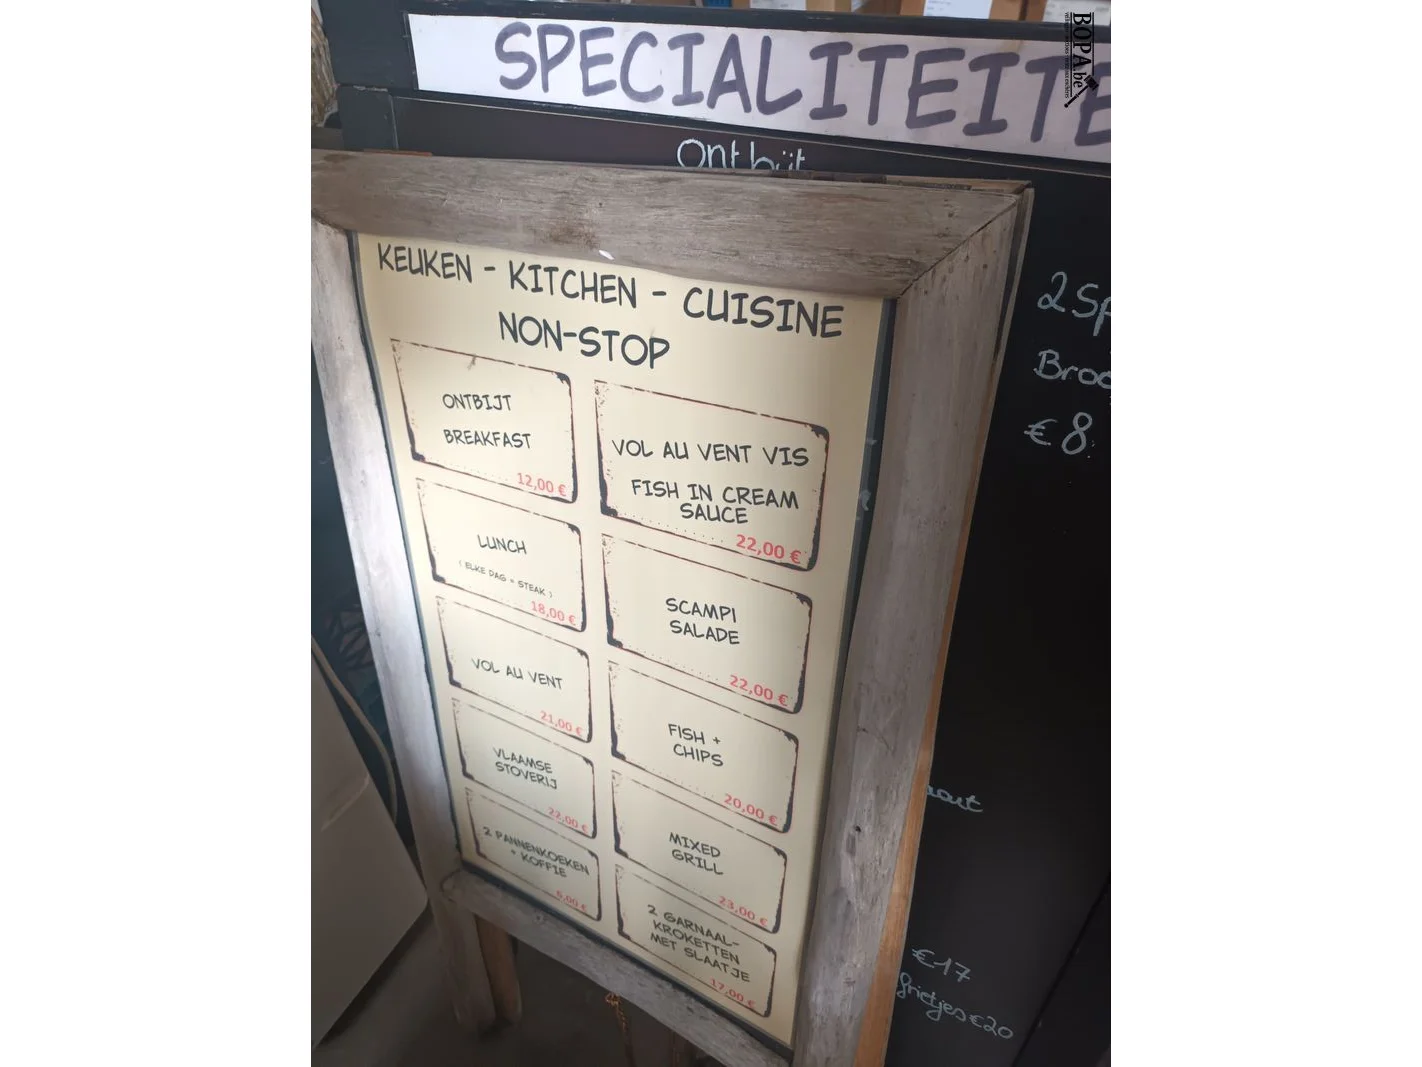 SPECIALITEITE
Ontbijt
KEUKEN - KITCHEN - CUISINE
NON-STOP
ONTBIJT
BREAKFAST
12,00 €
LUNCH
( ELKE DAG = STEAK )
18,00 €
VOL AU VENT
21,00 €
VLAAMSE
STOVERIJ
22,00 €
2 PANNENKOEKEN
+ KOFFIE
6,00 €
VOL AU VENT VIS
FISH IN CREAM
SAUCE
22,00 €
SCAMPI
SALADE
22,00 €
FISH +
CHIPS
20,00 €
MIXED
GRILL
23,00 €
2 GARNAAL-
KROKETTEN
MET SLAATJE
17,00 €
2 Sp
Broo
€ 8
€17
frietjes €20
BOPA.be